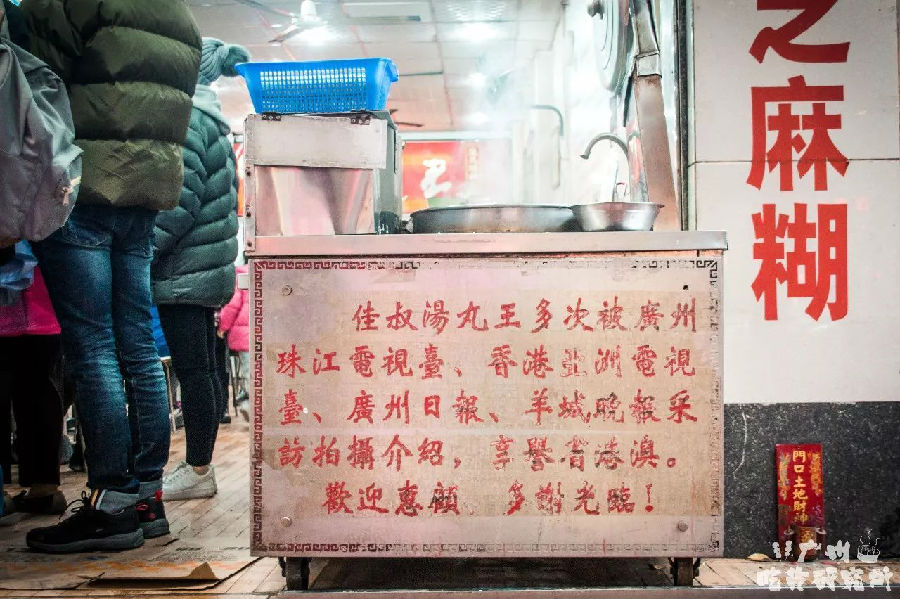 芝麻糊
佳叔湯丸王多次被廣州
珠江電視臺、香港亞洲電視
臺、廣州日報、羊城晚報采
訪拍攝介紹，享譽省港澳。
歡迎惠顧　多謝光臨！
門口土地財神
广州
吃货研究所